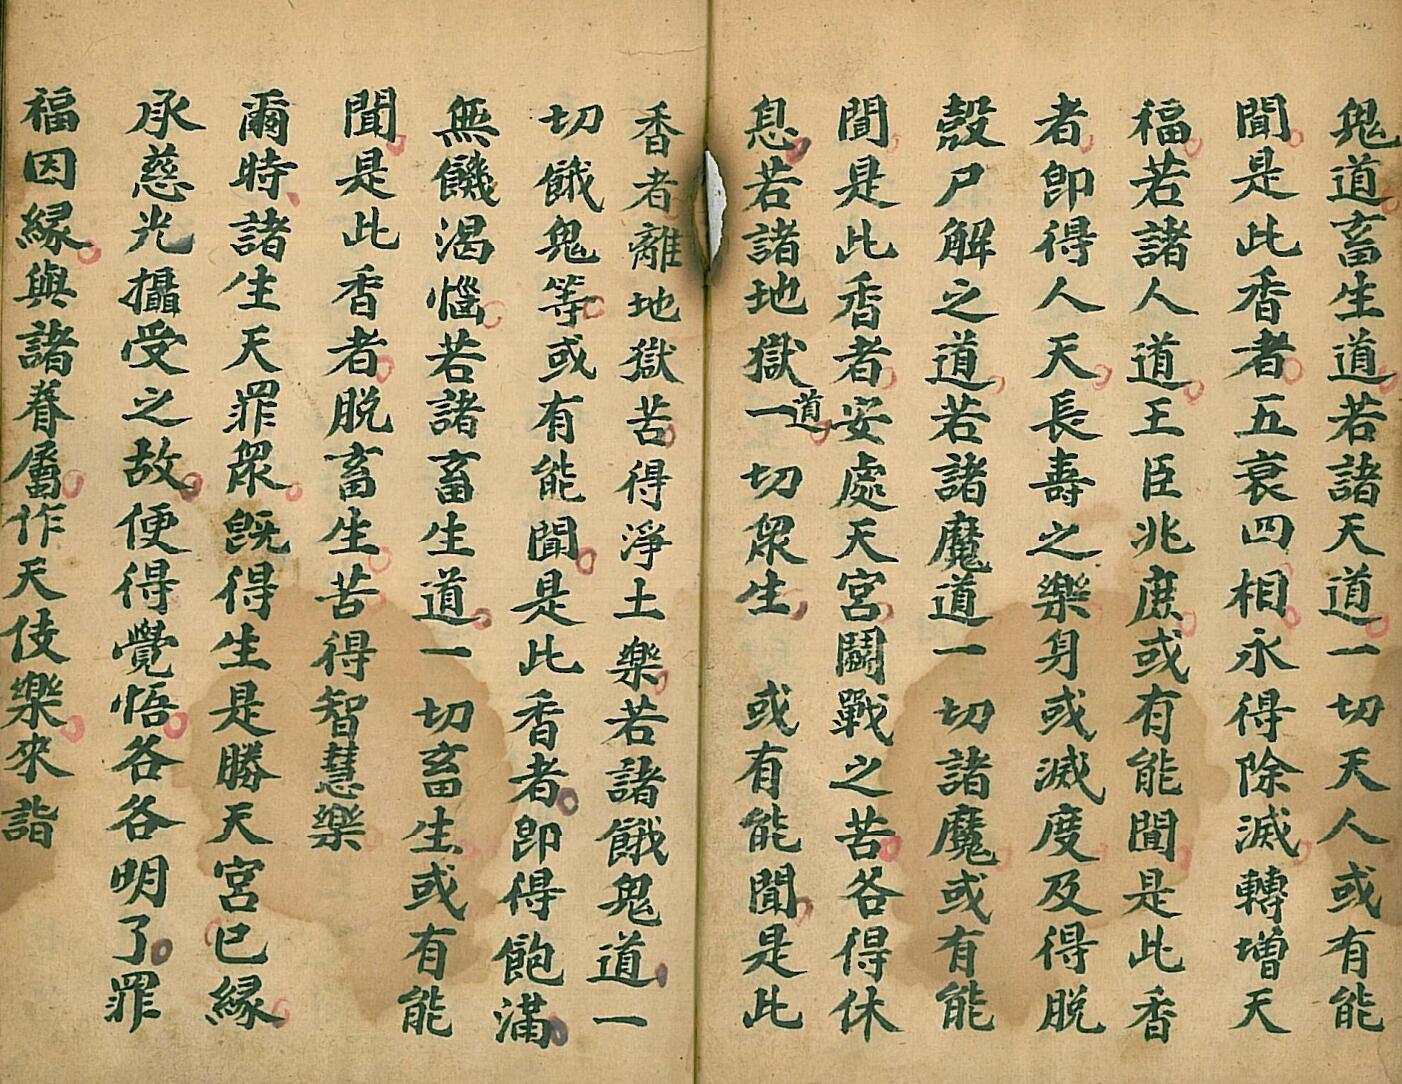 鬼道畜生道若諸天道一切天人或有能
聞是此香者五衰四相永得除滅轉增天
福若諸人道王臣兆庶或有能聞是此香
者即得人天長壽之樂身或滅度及得脫
殼尸解之道若諸魔道一切諸魔或有能
聞是此香者安處天宮鬪戰之苦各得休
息若諸地獄道一切眾生或有能聞是此
香者離地獄苦得淨土樂若諸餓鬼道一
切餓鬼等或有能聞是此香者即得飽滿
無饑渴惱若諸畜生道一切畜生或有能
聞是此香者脫畜生苦得智慧樂
爾時諸生天罪眾既得生是勝天宮已緣
承慈光攝受之故便得覺悟各各明了罪
福因緣與諸眷屬作天伎樂來詣